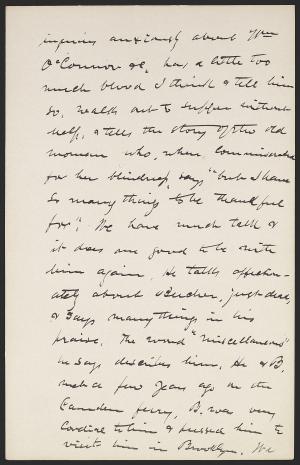 inquires anxiously about Wm
O'Connor &c, has a little too
much blood I think & tell him
so, walks out to supper without
help, & tells the story of the old
woman who, when commiserated
for her blindness, says "but I have
so many things to be thankful
for". We have much talk &
it does me good to be with
him again. He talks affection-
ately about Beecher, just dead,
& says many things in his
praise. The word "miscellaneous"
he says describes him. He & B.
met a few years ago on the
Camden ferry, B. was very
cordial to him & pressed him to
visit him in Brooklyn. We